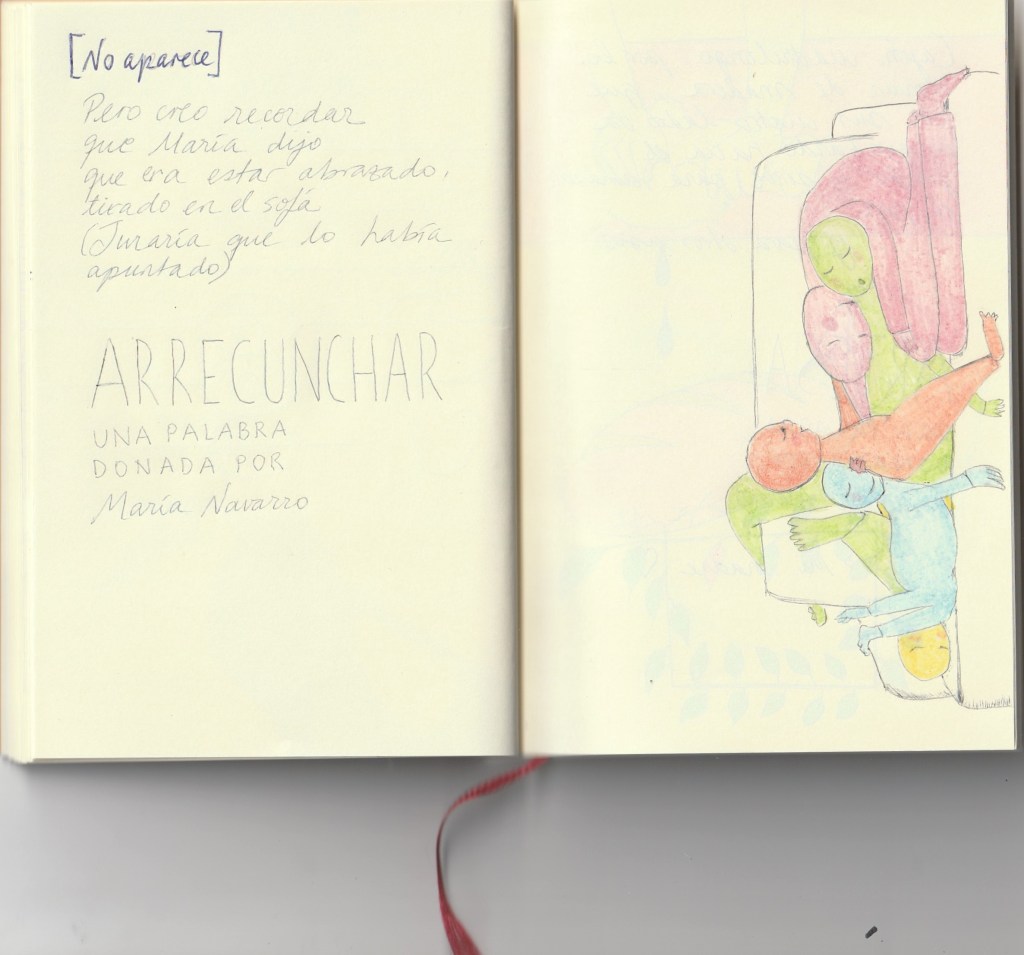 [No aparece]
Pero creo recordar
que María dijo
que era estar abrazado,
tirado en el sofá
(Juraría que lo había
apuntado)
ARRECUNCHAR
UNA PALABRA
DONADA POR
María Navarro